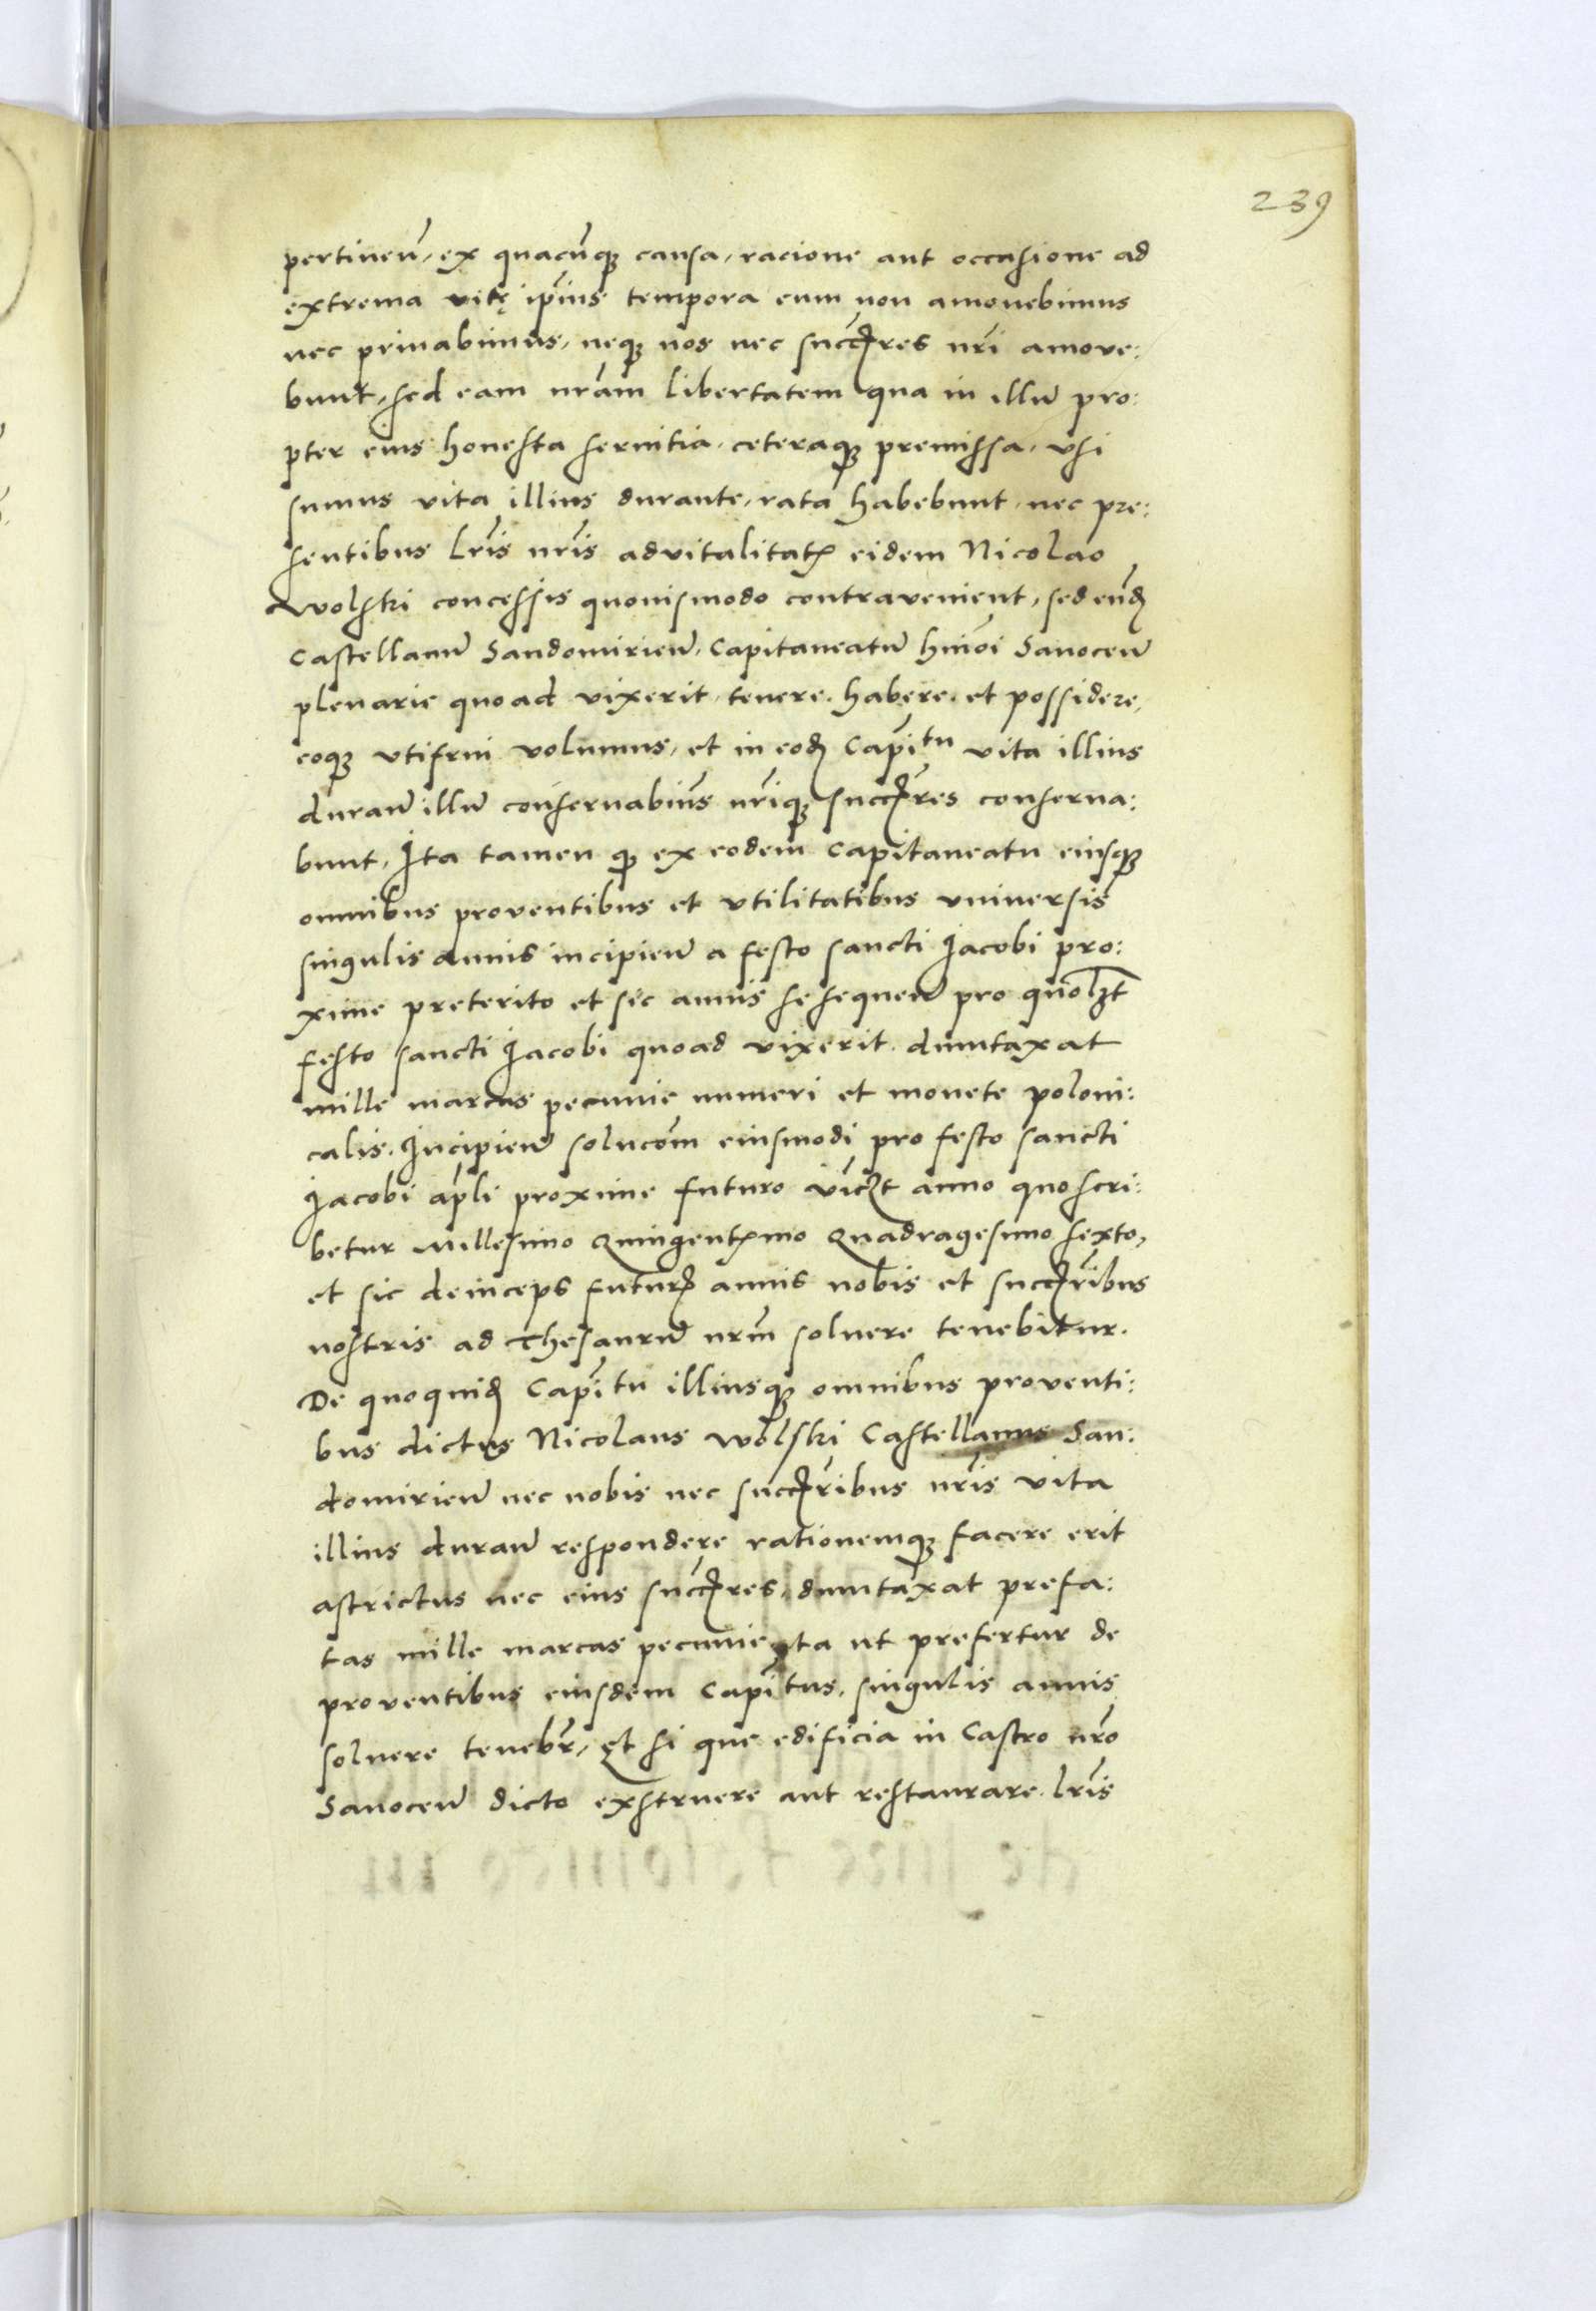 239
pertineñ, ex quacũqꝫ causa, racione aut occasione ad
extrema vitę ip̃ius tempora eum non amovebimus
nec privabimus, neqꝫ nos nec succẽres nr̃i amove:
bunt, sed eam nr̃am libertatem qua in illũ pro:
pter eius honesta servitia, ceteraqꝫ premissa, vsi
sumus vita illius durante, rata habebunt, nec pre:
sentibus lr̃is nr̃is advitalitatꝭ eidem Nicolao
Wolski concessis quovismodo contravenient, sed eund̃
Castellanũ Sandomirieñ, Capitaneatũ hm̃oi Sanoceñ
plenarie quoad vixerit, tenere, habere, et possidere,
eoqꝫ vtifrui volumus, et in eod̃ Capĩtu vita illius
durañ illũ conservabim̃s nr̃iqꝫ succẽres conserva:
bunt, Ita tamen qꝫ ex eodem capitaneatu eiusqꝫ
omnibus proventibus et vtilitatibus vniversis
singulis annis incipieñ a festo sancti Jacobi pro:
xime preterito et sic annis se sequeñ pro quolꝫt
festo sancti Jacobi quoad vixerit dumtaxat
mille marcas pecunie numeri et monete poloni:
calis. Incipieñ solucõm eiusmodi pro festo sancti
Jacobi ap̃li proxime futuro vicꝫt anno quo scri:
betur Millesimo Quingentꝭmo Quadragesimo sexto,
et sic deinceps futurꝭ annis nobis et succẽribus
nostris ad Thesaurũ nr̃m solvere tenebitur.
De quoquid̃ Capĩtu illiusqꝫ omnibus proventi:
bus dictus Nicolaus Wolski Castellanus San:
domirieñ nec nobis nec succẽribus nr̃is vita
illius durañ respondere rationemqꝫ facere erit
astrictus nec eius succẽres, dumtaxat prefa:
tas mille marcas pecunie ita ut prefertur de
proventibus eiusdem Capĩtus, singulis annis
solvere teneb̃r, Et si que edificia in Castro nr̃o
Sanoceñ dicto exstruere aut restaurare lr̃is